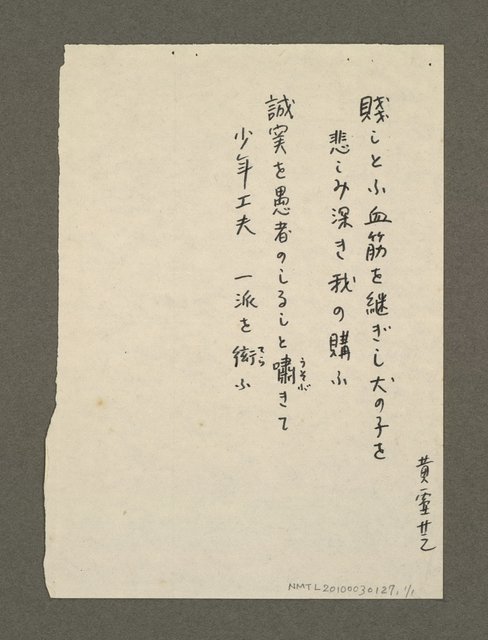 賤しとふ血筋を継ぎし犬の子を
悲しみ深き我の購ふ
誠実を愚者のしるしと嘯きて
うそぶ
少年工夫 一派を衒ふ
てら
黄霊芝
NMTL20100030127, 1/1